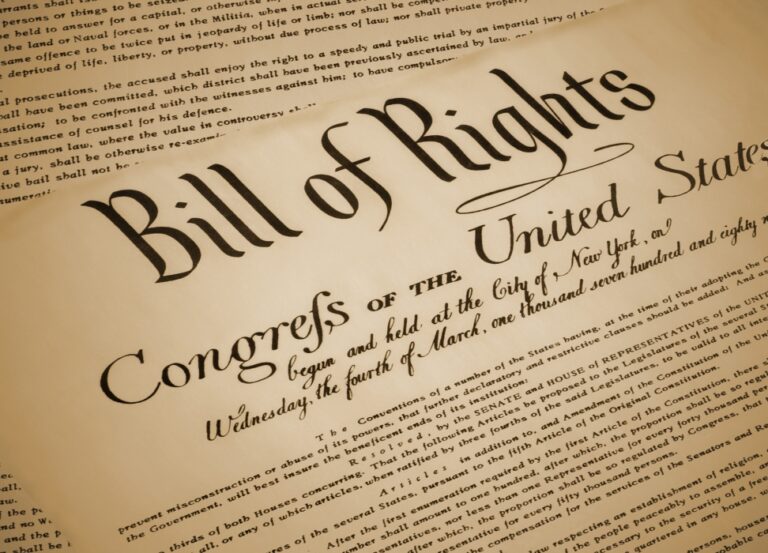 persons or things to be seized
be held to answer for a capital, or otherwise
the land or Naval forces, or in the Militia, when in actual
same offence to be twice put in jeopardy of life or limb; nor shall be
deprived of life, liberty, or property, without due process of law; nor shall private property
prosecutions, the accused shall enjoy the right to a speedy and public trial by an impartial jury of the
have been committed, which district shall have been previously ascertained by law,
to be confronted with the witnesses against him; to have
assistance of counsel for his defence.
common law, where the value in controversy
a jury, shall be otherwise
bail shall not be
Bill of Rights
Congreſs OF THE United States
begun and held at the City of New York, on
Wednesday, the fourth of March, one thousand seven hundred and eighty
The Conventions of a number of the States having, at the time of their adopting the
prevent misconstruction or abuse of its powers, that further declaratory and restrictive clauses should be added: And
the Government, will best insure the beneficent ends of its institution:
Resolved, by the SENATE and HOUSE of REPRESENTATIVES of the
thirds of both Houses concurring. That the following Articles be proposed to the Legislatures of the several
all, or any of which articles, when ratified by three fourths of the said Legislatures, to be valid to all
Articles in addition to, and Amendment of the Constitution of the
of the several States, pursuant to the fifth Article of the Original Constitution.
After the first enumeration required by the first Article of the Constitution, there
shall amount to one hundred, after which, the proportion shall be so
nor less than one Representative for every forty thousand
after which, the proportion shall be so regulated by Congress, that
for every fifty thousand persons.
compensation for the services of the Senators and
respecting an establishment of religion,
the people peaceably to assemble, and
necessary to the security of a free